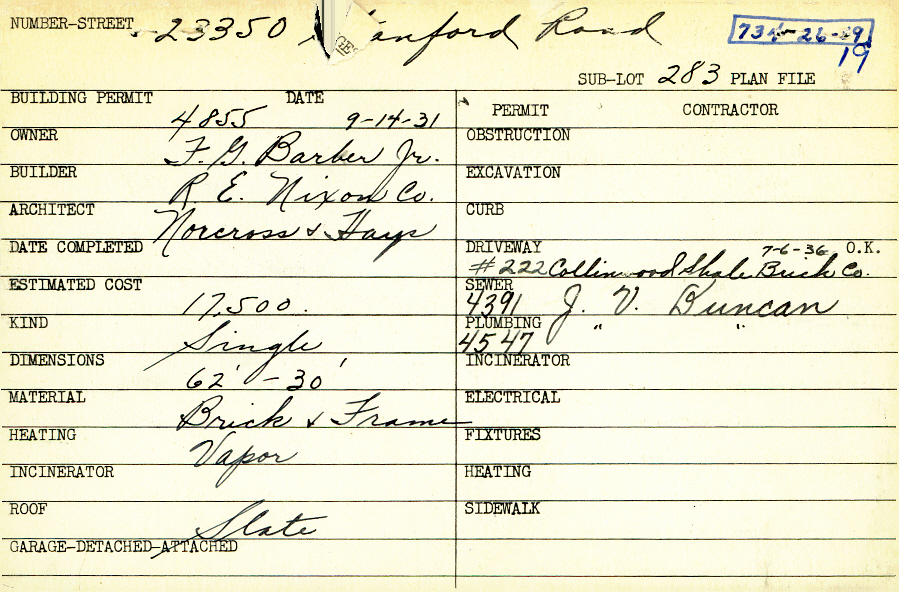 NUMBER-STREET 23350 anford Road 734-26-19
19
SUB-LOT 283 PLAN FILE
BUILDING PERMIT DATE
4855 9-14-31
OWNER F. G. Barber Jr.
BUILDER R. E. Nixon Co.
ARCHITECT Norcross & Hays
DATE COMPLETED
ESTIMATED COST 17,500.
KIND Single
DIMENSIONS 62' - 30'
MATERIAL Brick & Frame
HEATING Vapor
INCINERATOR
ROOF Slate
GARAGE-DETACHED-ATTACHED
PERMIT CONTRACTOR
OBSTRUCTION
EXCAVATION
CURB
DRIVEWAY 7-6-36 O.K.
#222 Collinwood Shale Brick Co.
SEWER
4391 J. V. Duncan
PLUMBING " "
4547
INCINERATOR
ELECTRICAL
FIXTURES
HEATING
SIDEWALK